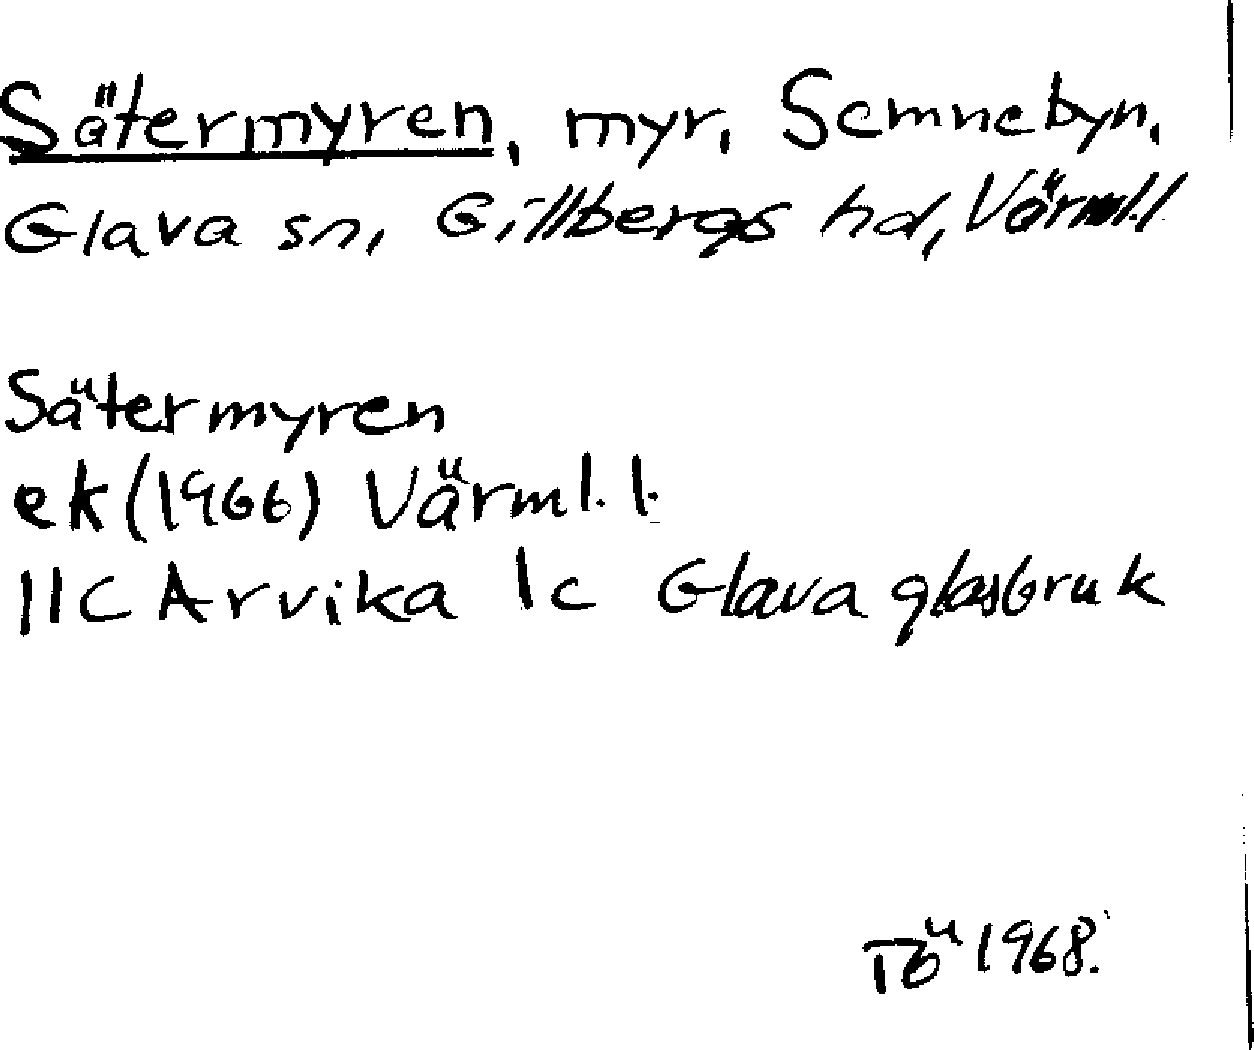 Sätermyren, myr, Semnebyn,
Glava sn, Gillbergs hd, Värml.l
Sätermyren
ek (1966) Värml. l.
11C Arvika 1c Glava glasbruk
Tö 1968.